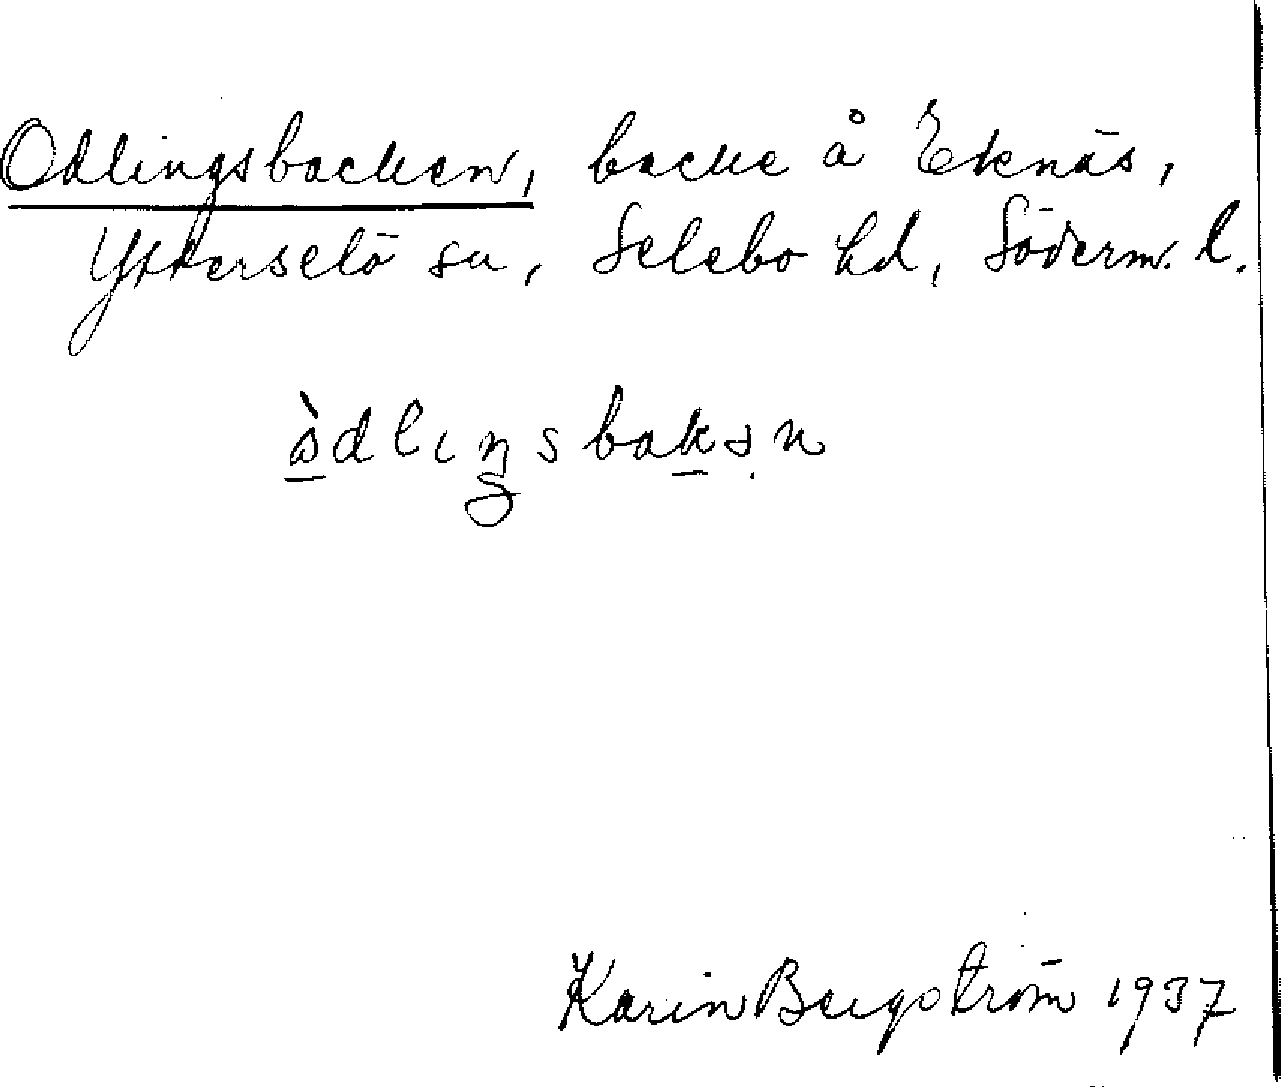 Odlingsbacken, backe å Eknäs,
Ytterselö sn, Selebo hd, Söderm. l.
Karin Bergström 1937